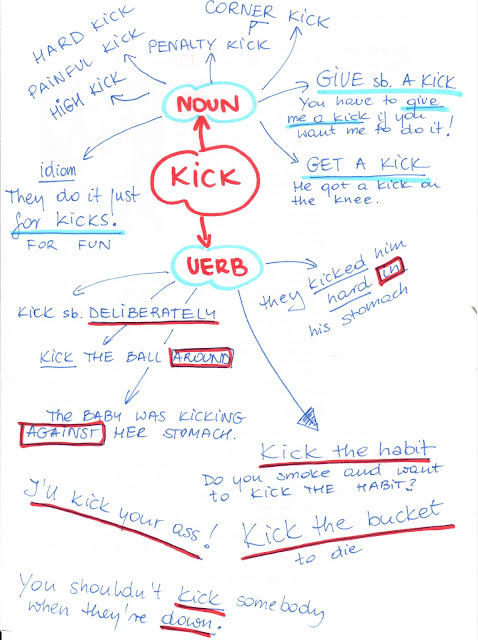 CORNER KICK
HARD KICK
PENALTY KICK
PAINFUL KICK
HIGH KICK
NOUN
GIVE sb. A KICK
You have to give
me a kick if you
want me to do it!
idiom
They do it just
for KICKS!
FOR FUN
KICK
GET A KICK
He got a kick on
the knee.
VERB
they kicked him
hard in
his stomach
Kick sb. DELIBERATELY
KICK THE BALL AROUND
The BABY WAS KICKING
AGAINST HER STOMACH.
Kick the habit
Do you smoke and want
to KICK THE HABIT?
I'll kick your ass!
Kick the bucket
to die
You shouldn't kick somebody
when they're down.